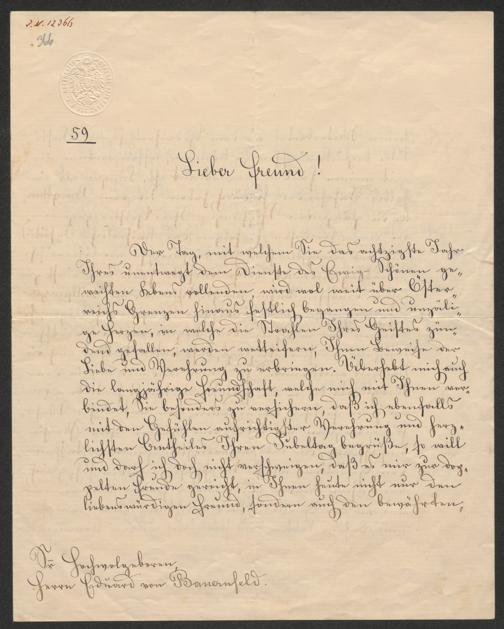 I.N. 12366
366
59
Lieber Freund!
Der Tag, mit welchem Sie das achtzigste Jahr
Ihres unentwegt dem Dienste des Ewig-Schönen ge-
weihten Lebens vollenden, wird wol weit über Öster-
reichs Grenzen hinaus festlich begangen und unzäli-
ge Herzen, in welche die Strahlen Ihres Geistes zün-
dend gefallen, werden wetteifern, Ihnen Beweise der
Liebe und Verehrung zu erbringen. Überhebt mich auch
die langjährige Freundschaft, welche mich mit Ihnen ver-
bindet, Sie besonders zu versichern, daß ich ebenfalls
mit den Gefühlen aufrichtigster Verehrung und herz-
lichsten Antheiles Ihren Jubeltag begrüße, so will
und darf ich doch nicht verschweigen, daß es mir zur dop-
pelten Freude gereicht, in Ihnen heute nicht nur den
liebenswürdigen Freund, sondern auch den bewährten,
Sr Hochwolgeboren,
Herrn Eduard von Bauernfeld.